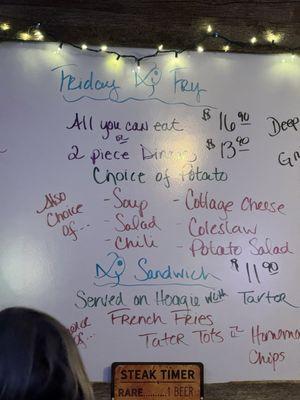 Friday Fry
All you can eat $16.90 Deep
or
2 piece Dinner $13.90
Choice of Potato
Also
Choice
of...
- Soup - Cottage Cheese
- Salad - Coleslaw
- Chili - Potato Salad
Sandwich $11.90
Served on Hoagie with Tartar
French Fries
of... Tater Tots or Homemade
Chips
STEAK TIMER
RARE..........1 BEER